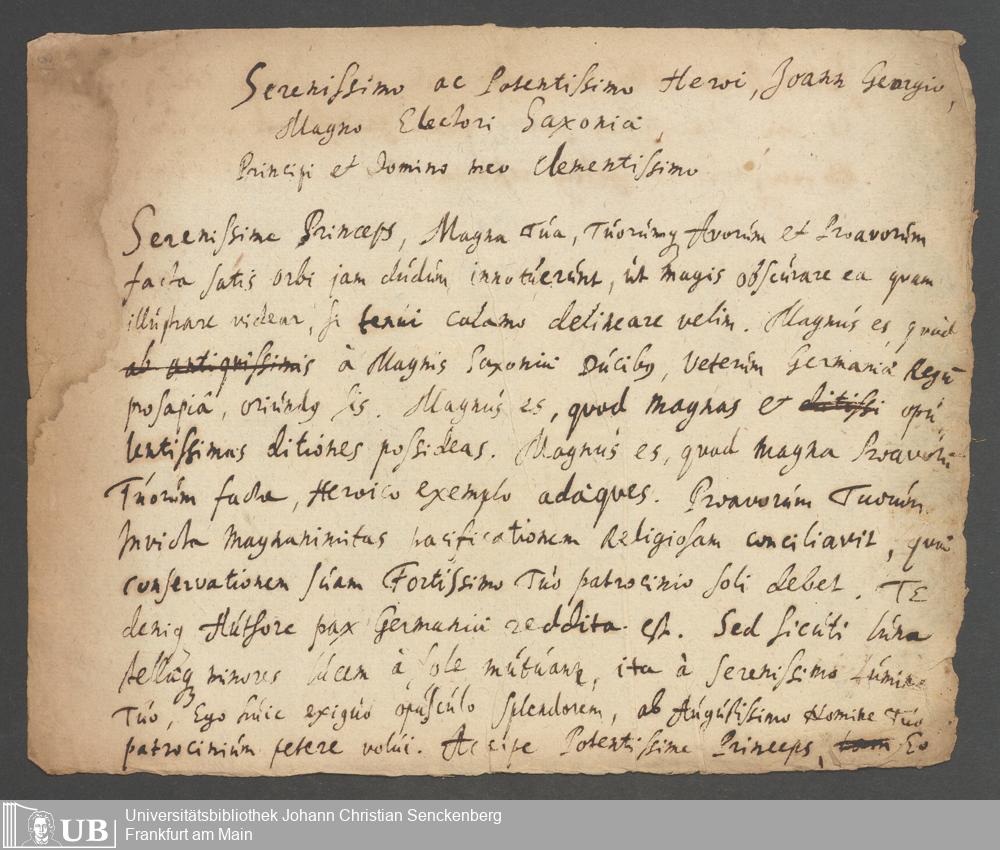 Serenissimo ac Potentissimo Heroi, Joann Georgio,
Magno Electori Saxoniæ
Principi et Domino meo Clementissimo
Serenissime Princeps, Magna Túa, Túorúmq Avorúm et Proavorúm
facta satis orbi jam dúdúm innotúerúnt, út magis obscúrare ea quam
illústrare videar, si tenui calamo delineare velim. Magnús es, quod
ab antiquissimis à Magnis Saxoniæ Dúcibq, veterúm Germaniæ Regú
prosapiâ, oriúndq sis. Magnús es, quod magnas et ditissi opú
lentissimas ditiones possideas. Magnús es, quod magna Proavorú
Túorúm facta, Heroico exemplo adæques. Proavorúm Tuorúm
Invicta magnanimitas pacificationem Religiosam conciliavit, quæ
conservationem súam Fortissimo Túo patrocinio soli debet. TE
deniq Aúthore pax Germaniæ reddita est. Sed sicúti lúna
stellæq minores lúcem à sole mútúant, ita à serenissimo Lúmine
Túo, Ego húic exigúo opúscúlo splendorem, ab Aúgústissimo Nomine Túo
patrociniúm petere volúi. Accipe Potentissime Princeps, tam Eo
8
UB
Universitätsbibliothek Johann Christian Senckenberg
Frankfurt am Main